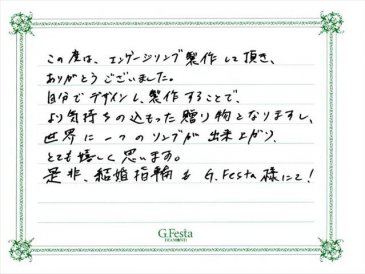 この度は、エンゲージリング製作して頂き、
ありがとうございました。
自分でデザインし、製作することで、
より気持ちの込もった贈り物となりますし、
世界に一つのリングが出来上がり、
とても嬉しく思います。
是非、結婚指輪も G.Festa 様にて!
G.Festa
DIAMOND